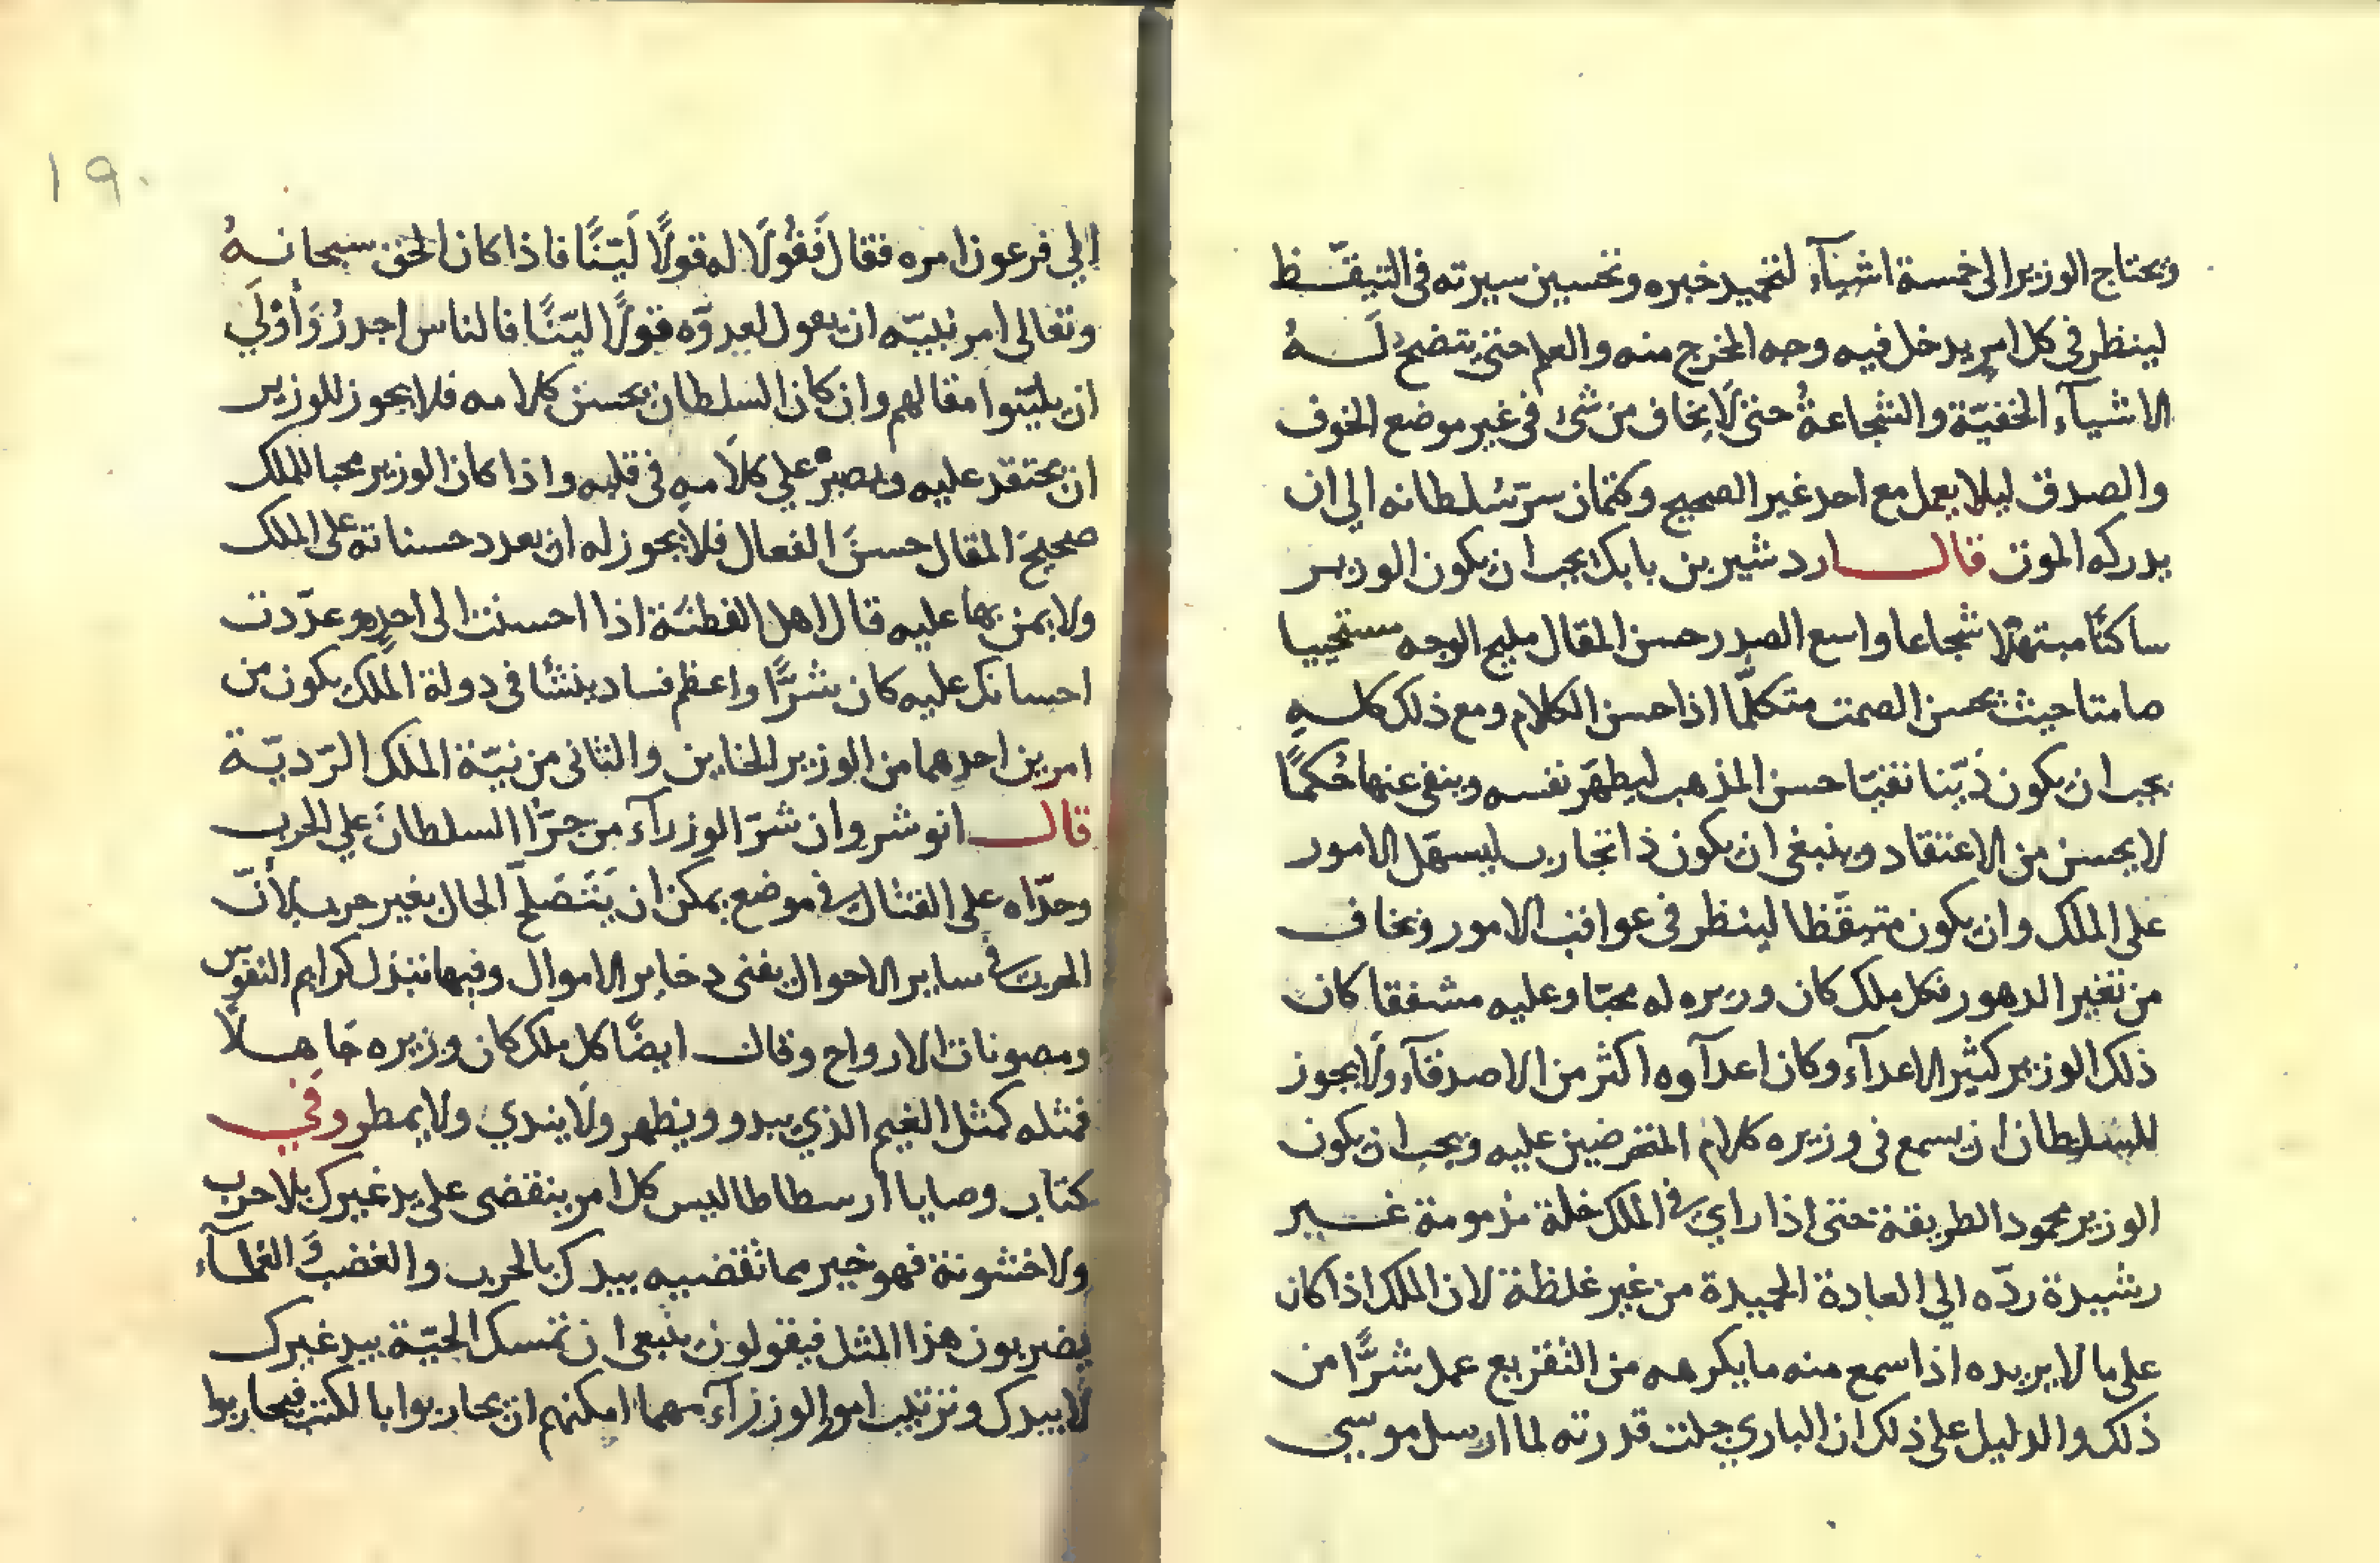 ويحتاج الوزير الى خمسة اشيآء لتحميد خبره وتحسين سيرته في التيقّظ
لينظر في كل امر يدخل فيه وجه المخرج منه والعلم حتى يتضح له
الاشيآء الخفيّة والشجاعة حتى لا يخاف من شئ في غير موضع الخوف
والصدق ليلا يعمل مع احد غير الصحيح وكتمان سرّ سلطانه الي ان
يدركه الموت قال اردشير بن بابك يجب ان يكون الوزير
ساكنًا مبتهلا شجاعا واسع الصدر حسن المقال مليح الوجه مستحييا
صامتا حيث يحسن الصمت متكلّما اذا حسن الكلام ومع ذلك كله
يجب ان يكون ذيّنا نقيّا حسن المذهب ليطهّر نفسه وينفي عنها حُكمًا
لا يحسن من الاعتقاد وينبغي ان يكون ذا تجارب ليسهّل الامور
على الملك وان يكون متيقّظا لينظر في عواقب الامور ويخاف
من تغير الدهور فكل ملك كان وزيره له محبّا وعليه مشفقا كان
ذلك الوزير كثير الاعدآء وكان اعدآوه اكثر من الاصدقآء ولا يجوز
للسلطان ان يسمع في وزيره كلام المتعرضين عليه ويجب ان يكون
الوزير محمود الطريقة حتى اذا راي في الملك خلة مذمومة غير
رشيدة ردّه الي العادة الحميدة من غير غلظة لان الملك اذا كان
على ما لا يريده اذا سمع منه ما يكرهه من التقريع عمل شرًّا من
ذلك والدليل على ذلك ان الباري جلت قدرته لما ارسل موسي
١٩٠
الي فرعون امره فقال فَقُولَا له قولًا لَيّنًا فاذا كان الحق سبحانهُ
وتعالى امر نبيّه ان يقول لعدوّه قولًا ليّنًا فالناس اجدرُ وَأوْلَي
ان يليّنوا مقالهم وان كان السلطان يحسن كلامه فلا يجوز للوزير
ان يحتقد عليه ويصبر علي كلامه في قلبه واذا كان الوزير محبا للملك
صحيحَ المقال حسنَ الفعال فلا يجوز له ان يعدد حسناته على الملك
ولا يمن بها عليه قال اهل الفطنة اذا احسنت الى احدٍ وعدّدت
احسانك عليه كان شرًّا واعظم فساد ينشأ في دولة المُلك يكون من
امرين احدِهما من الوزير الخاين والثاني من نيّة الملك الرّديّة
قال انوشروان شرّ الوزرآء من جرّأ السلطان علي الحرب
وحدّاه على القتال في موضع يمكن ان يَنصَلح الحال بغير حرب لأنّ
الحرب في ساير الاحوال يفنى دخاير الاموال وفيها تبتذل كرايم النفوس
ومصونات الارواح وقال ايضًا كل ملك كان وزيره جَاهلاً
فمثله كمثل الغيم الذي يبدو ويظهر ولا يندي ولا يمطر وفي
كتاب وصايا ارسطاطاليس كل امر ينقضى على يد غيرك بلا حرب
ولا خشونة فهو خير مما تقضيه بيدك بالحرب والغضب والعلمآء
يضربون هذا المثل فيقولون ينبغي ان تمسك الحيّة بيد غيرك
لا بيدك وترتيب امور الوزرآء مهما امكنهم ان يحاربوا بالكتب فيحاربوا